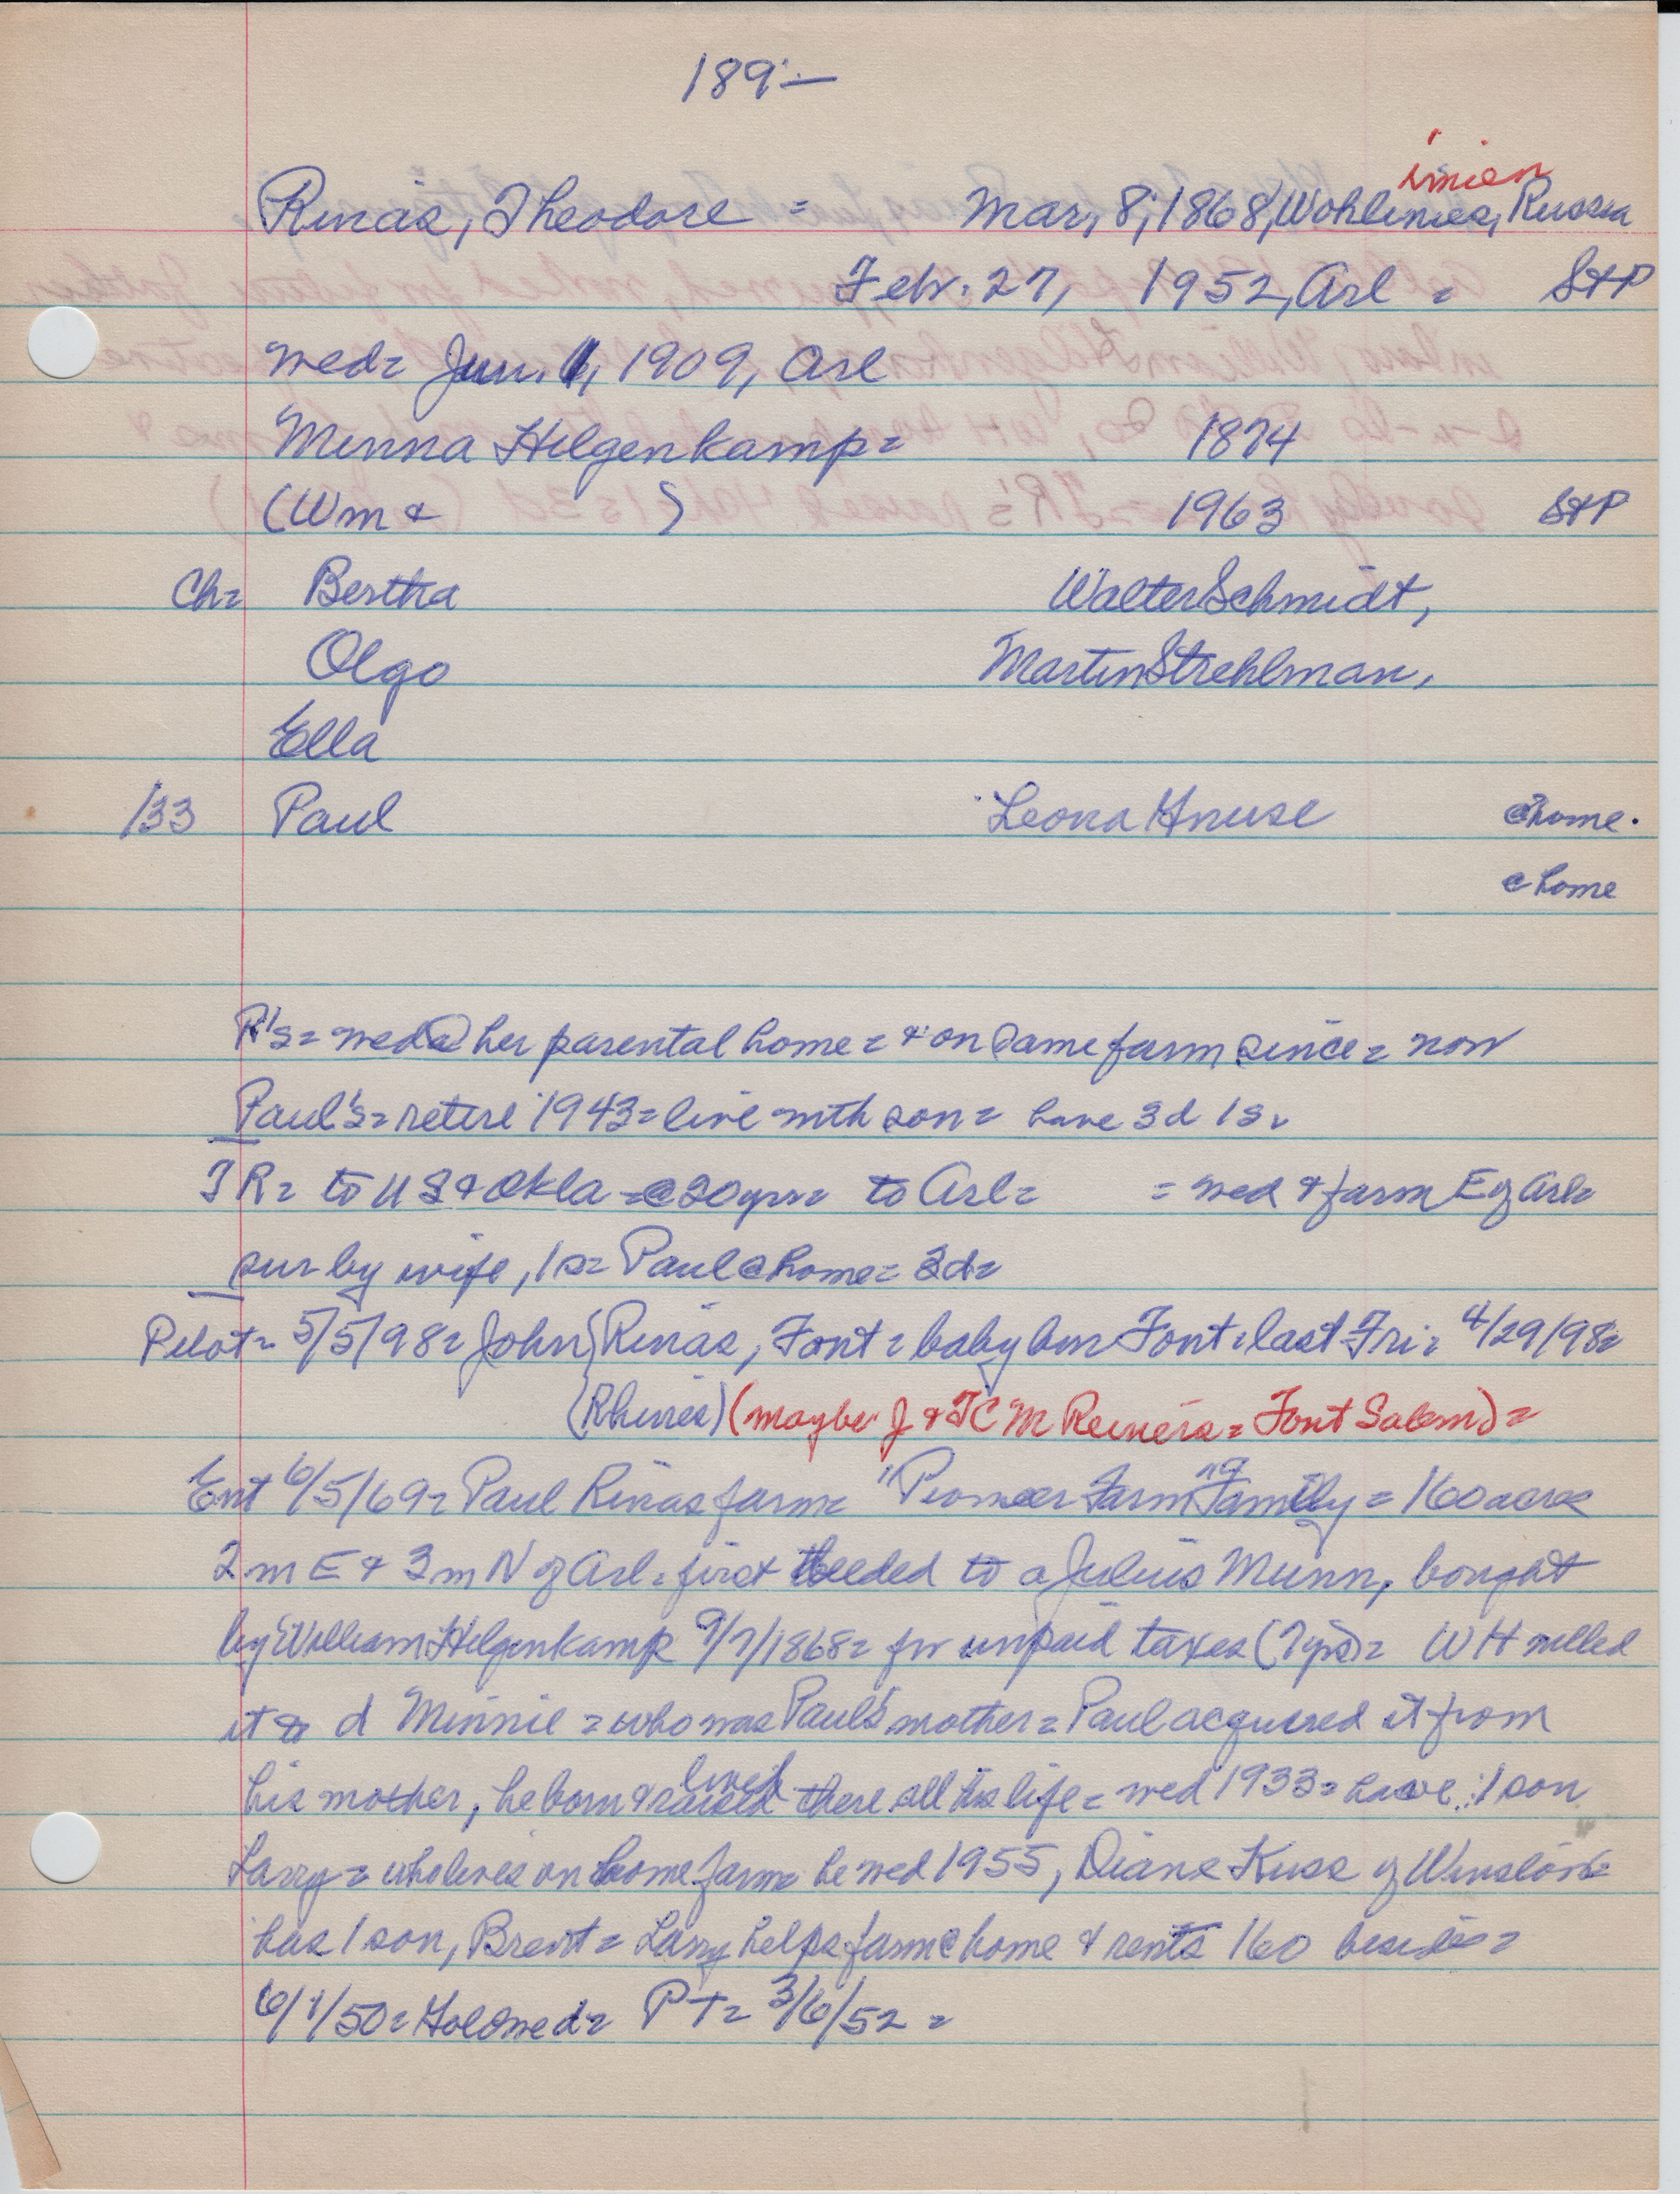 189-
inien
Rinas, Theodore = Mar, 8, 1868, Wohlinies, Russia
Febr. 27, 1952, Arl = StP
wed= Jun. 1, 1909, Arl
Minna Hilgenkamp= 1874
(Wm & ) 1963 StP
Ch= Bertha Walter Schmidt,
Olgo Martin Strehlman,
Ella
/33 Paul Leona Knuse @home.
@home
R's= wed @ her parental home= & on same farm since= now
Paul's= retire 1943= live with son= have 3d 1s=
TR= to US & Okla =@20yrs= to Arl= = wed & farm E of Arl=
sur by wife, 1s= Paul @home= 3d=
Pilot= 5/5/98= John Rinas, Font= baby born Font= last Fri= 4/29/98=
(Rhines) (maybe J & TCM Reiners= Font Salem)=
Ent 6/5/69= Paul Rinas farm= "Pioneer Farm Family = 160 acres
2m E & 3m N of Arl= first deeded to a Julius Munn, bought
by William Hilgenkamp 9/7/1868= for unpaid taxes (7yrs)= WH willed
it to d Minnie = who was Paul's mother= Paul acquired it from
his mother, he born & raised lived there all his life= wed 1933= have 1 son
Larry= who lives on home farm= he wed 1955, Diane Kuss of Winslow=
has 1 son, Brent= Larry helps farm @ home & rents 160 besides=
6/1/50= Goldwed= PT= 3/6/52=